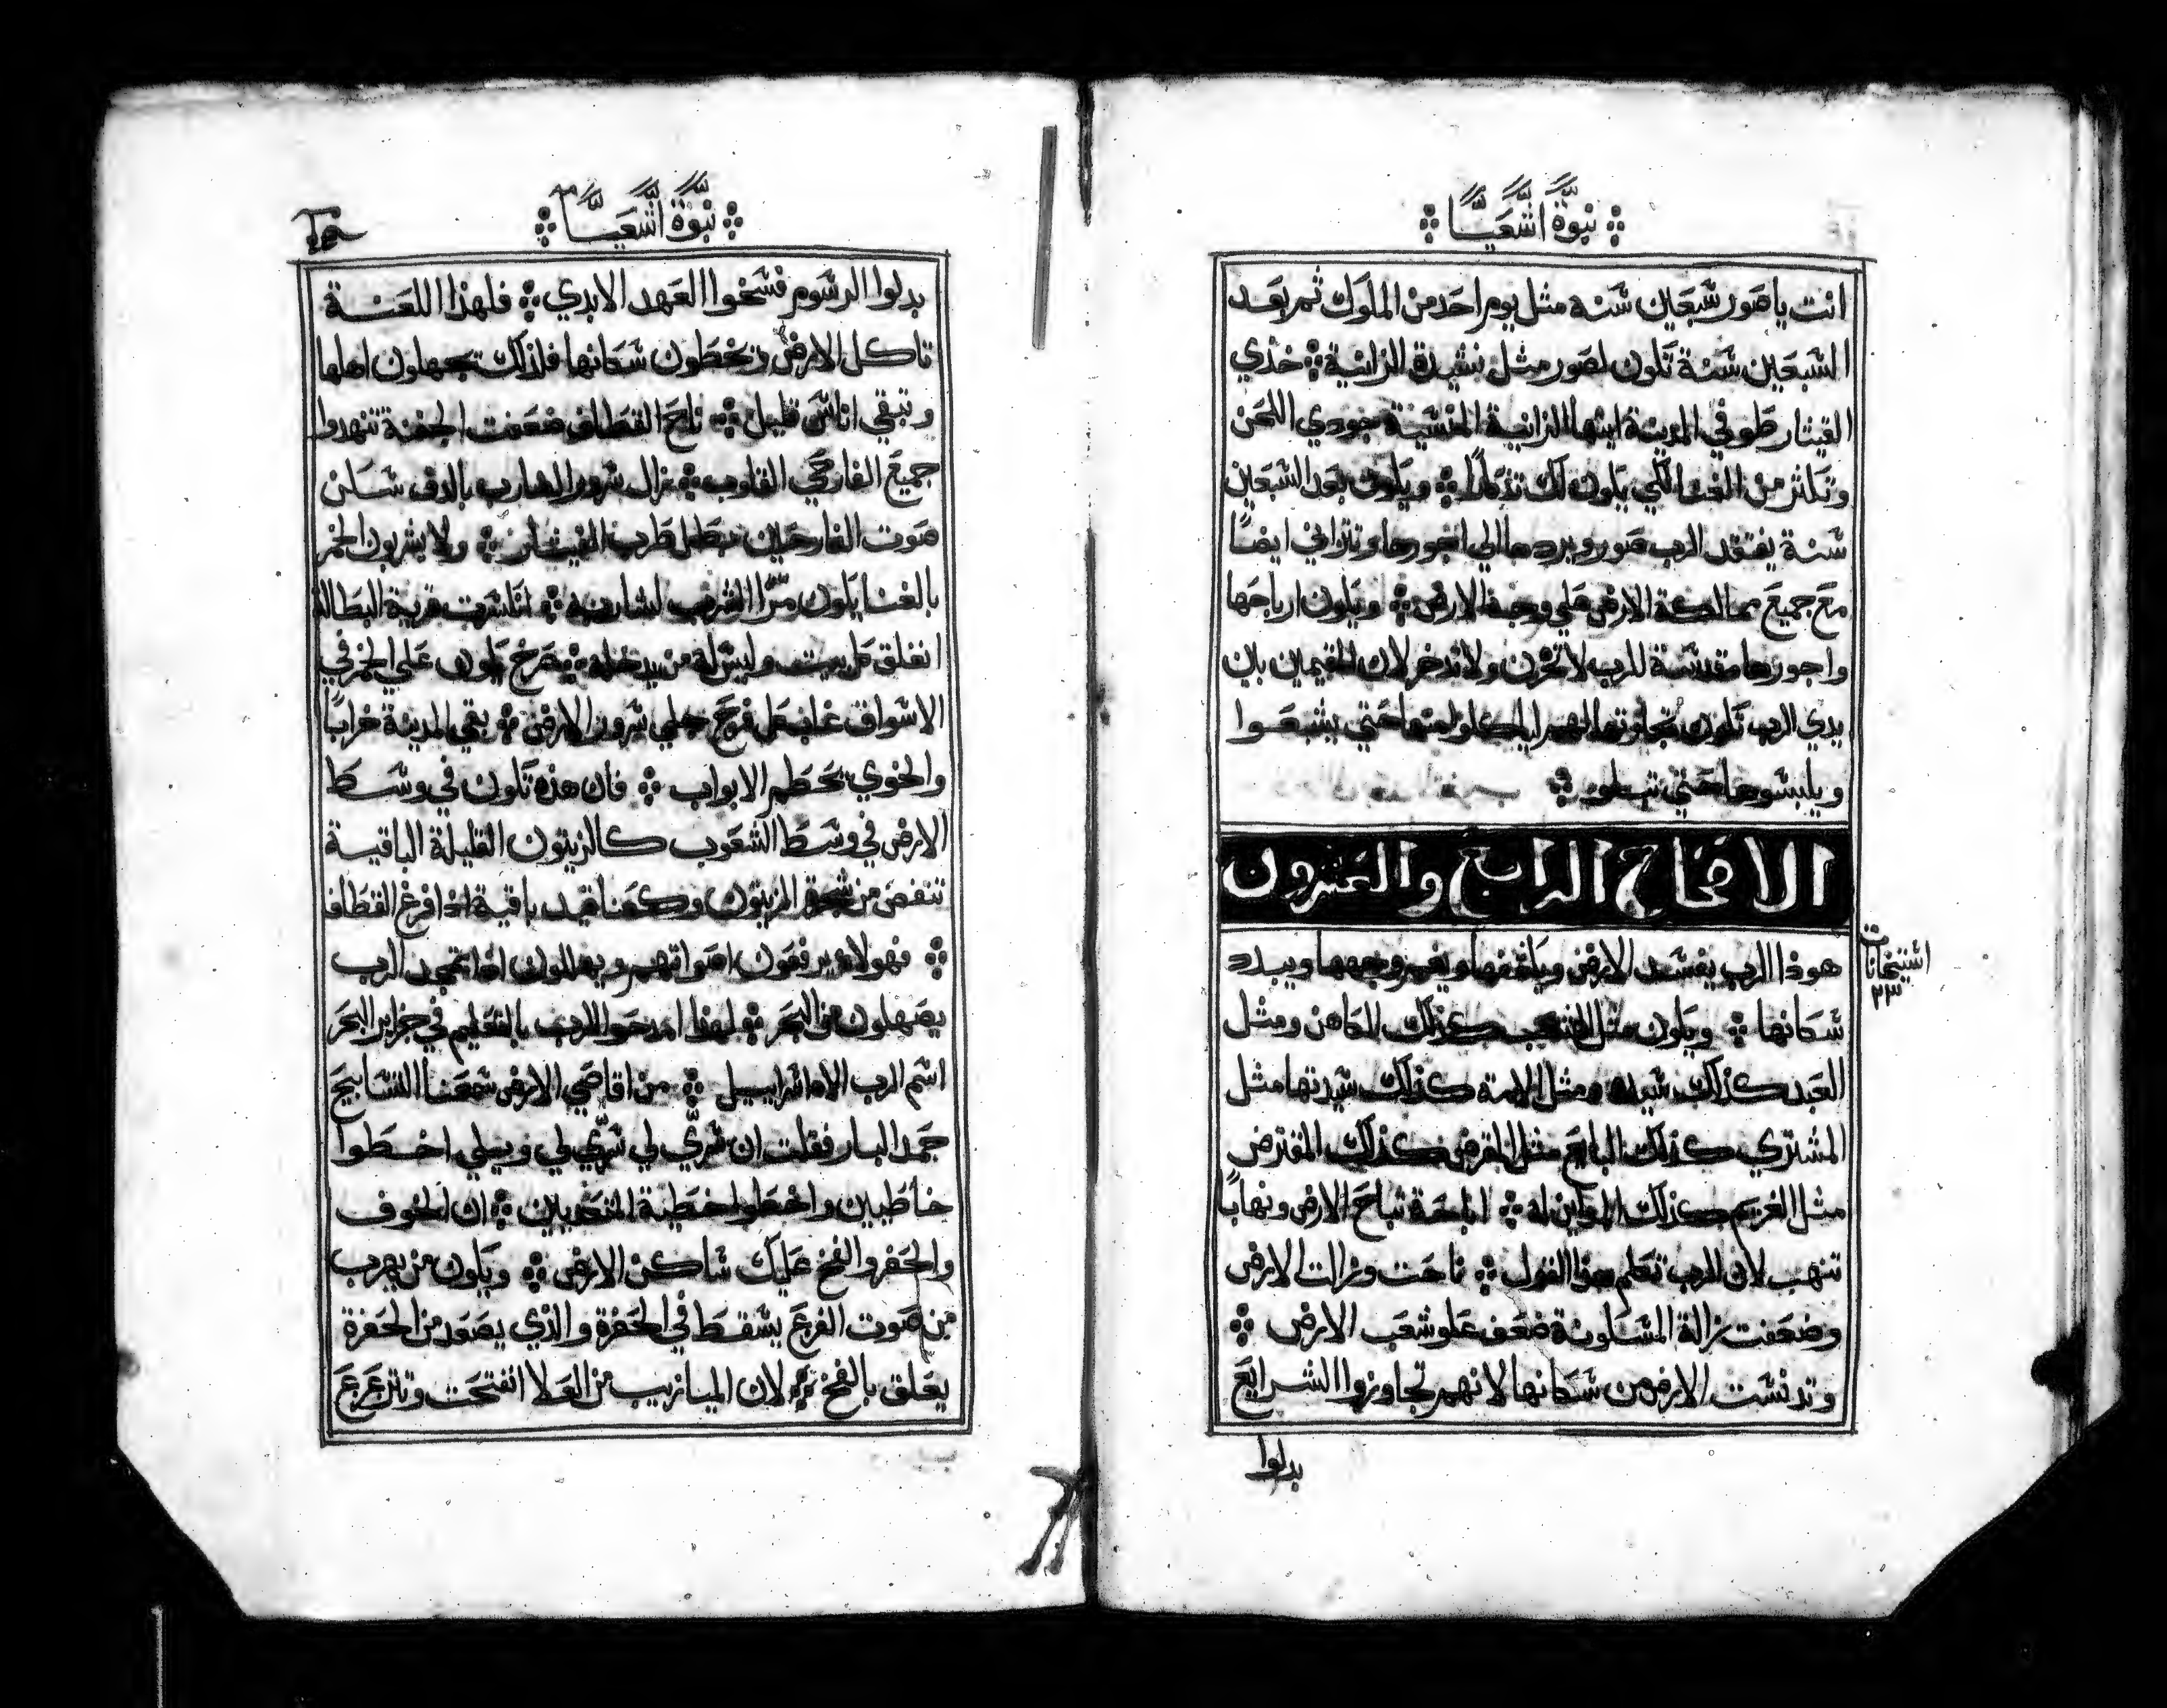 نبوة اشعيا
انت يا صور سبعين سنه مثل يوم احد من الملوك ثم بعد
السبعين سنة تكون لصور مثل نشيدة الزانية ❖ خذي
القيثار طوفي المدينة ايتها الزانية المنسية جودي اللحن
وتكثر من الغنا لكي يكون لك تذكارا ❖ ويكون بعد السبعين
سنة يفتقد الرب صور ويردها الي اجورها وتزاني ايضًا
مع جميع ممالكة الارض علي وجه الارض ❖ ويكون ارباحها
واجورها مقدسة للرب لا تخزن ولا تدخر لان المقيمين بين
يدي الرب تكون تجارتها لهم لياكلوا منها حتي يشبعوا
ويلبسوها حتي تبلو ❖
الاصحاح الرابع والعشرون
هوذا الرب يفسد الارض ويكشفها ويغير وجهها ويبدد
سكانها ❖ ويكون مثل الشعب كذلك الكاهن ومثل
العبد كذلك سيده ومثل الامة كذلك سيدتها مثل
المشتري كذلك البايع مثل المقرض كذلك المقترض
مثل الغريم كذلك المداين له ❖ اباحة تباح الارض ونهابًا
تنهب لان الرب تكلم هذا القول ❖ ناحت وزالت الارض
وضعفت زالة المسكونة ضعف علو شعب الارض ❖
وتدنست الارض من سكانها لانهم تجاوزوا الشرايع
بدلوا
نبوة اشعيا
بدلوا الرسوم فسخوا العهد الابدي ❖ فلهذا اللعنة
تاكل الارض ويخطون سكانها فلذلك يجهلون اهلها
وتبقي اناس قليل ❖ ناح القطاف ضعفت الجفنة تنهدوا
جميع الفارحي القلوب ❖ زال سرور الضارب بالدف سكن
صوت الفارحين بطل طرب القيثار ❖ ولا يشربون الخمر
بالغنا يكون مرًا الشرب لشاربه ❖ انكسرت قرية البطالة
انغلق كل بيت وليس له من يدخله ❖ صرخ يكون علي الخمر في
الاسواق غاب كل فرح جلي سرور الارض ❖ بقي المدينة خرابًا
والخوي يحطم الابواب ❖ فان هذه تكون في وسط
الارض في وسط الشعوب كالزيتون القليلة الباقية
تنفض من شجرة الزيتون وكعناقيد باقية اذا فرغ القطاف
❖ فهولا يرفعون اصواتهم ويهللون اذا تمجد الرب
يصهلون من البحر ❖ لهذا امدحوا الرب بالتعليم في جزاير البحر
اسم الرب الاه اسراييل ❖ من اقاصي الارض سمعنا التسابيح
حمد البار فقلت ان سري لي سري لي ويلي اخطوا
خاطيين واخطوا خطية المتعديين ❖ ان الخوف
والحفر والفخ عليك ساكن الارض ❖ ويكون من يهرب
من صوت الفزع يسقط في الحفرة والذي يصعد من الحفرة
يعلق بالفخ ❖ لان الميازيب من العلا انفتحت وتتزعزع